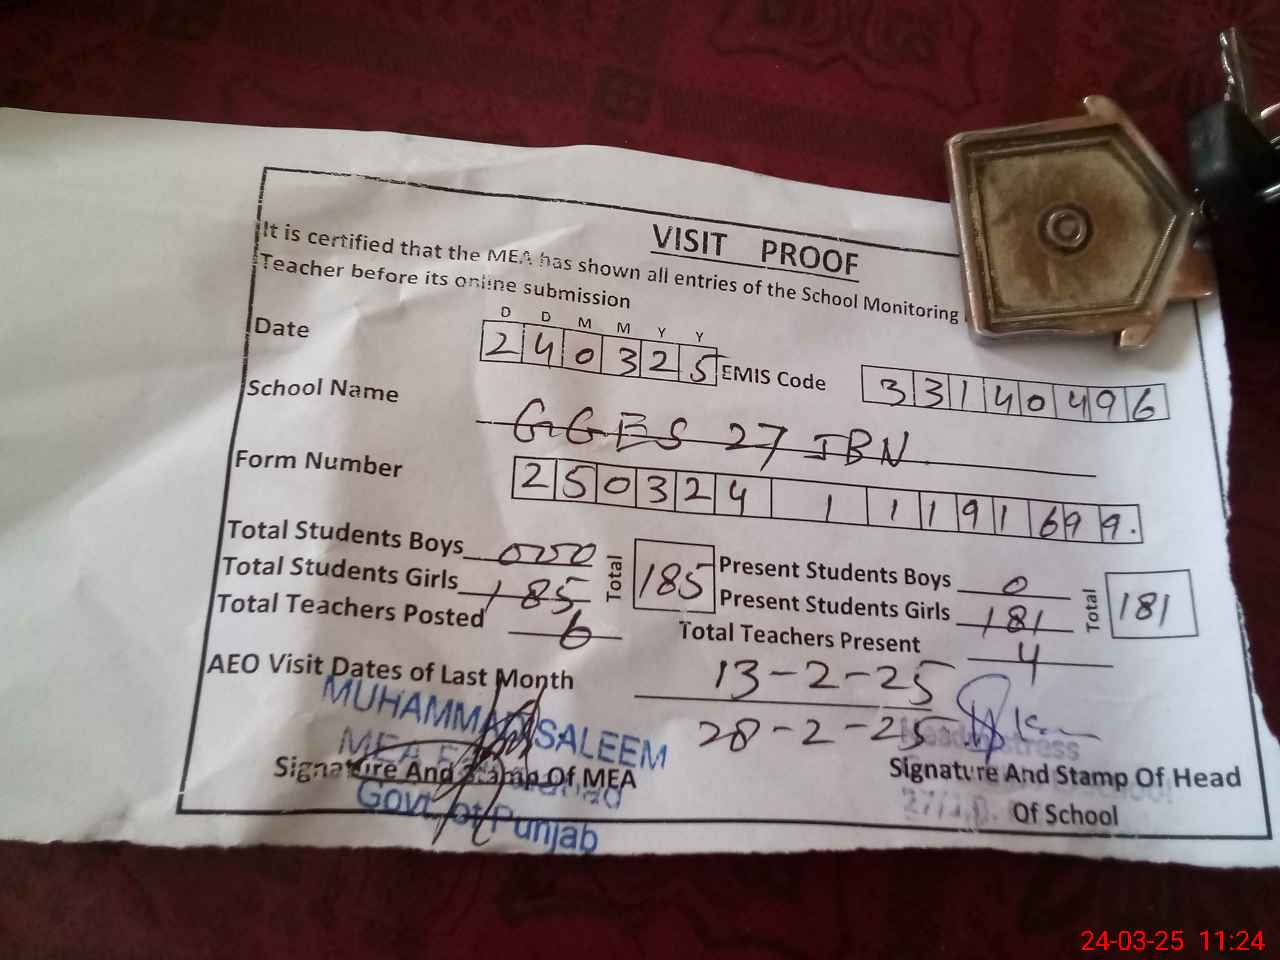 VISIT PROOF
It is certified that the MEA has shown all entries of the School Monitoring
Teacher before its online submission
D D M M Y Y
Date 2 4 0 3 2 5 EMIS Code 3 3 1 4 0 4 9 6
School Name GGES 27 JBN
Form Number 2 5 0 3 2 4 1 1 1 9 1 6 9 9.
Total Students Boys 0 Total 185 Present Students Boys 0 Total 181
Total Students Girls 185 Present Students Girls 181
Total Teachers Posted 6 Total Teachers Present 4
AEO Visit Dates of Last Month 13-2-25
28-2-25
MUHAMMAD SALEEM
MEA
Govt. of Punjab
Signature And Stamp Of MEA
Headmistress
Signature And Stamp Of Head
Of School
24-03-25 11:24